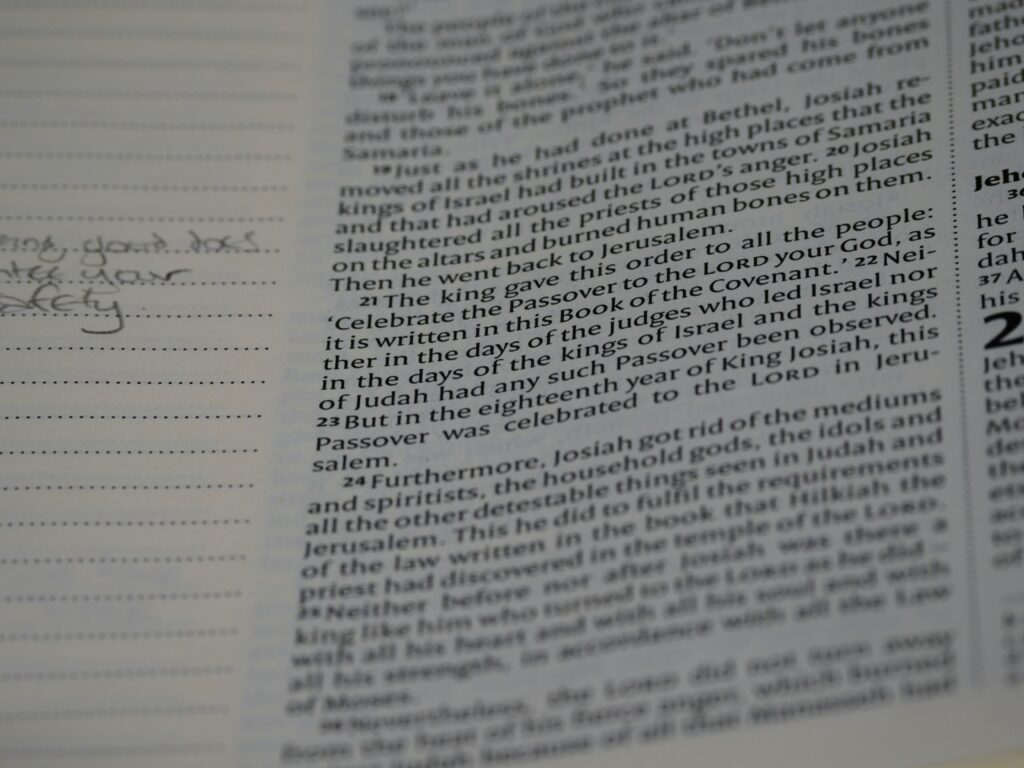 your
safety
The people of the
of the man of God who
pronounced against the altar of
things you have done to it.'
18 'Leave it alone,' he said. 'Don't let anyone
disturb his bones.' So they spared his bones
and those of the prophet who had come from
Samaria.
19 Just as he had done at Bethel, Josiah re-
moved all the shrines at the high places that the
kings of Israel had built in the towns of Samaria
and that had aroused the LORD's anger. 20 Josiah
slaughtered all the priests of those high places
on the altars and burned human bones on them.
Then he went back to Jerusalem.
21 The king gave this order to all the people:
'Celebrate the Passover to the LORD your God, as
it is written in this Book of the Covenant.' 22 Nei-
ther in the days of the judges who led Israel nor
in the days of the kings of Israel and the kings
of Judah had any such Passover been observed.
23 But in the eighteenth year of King Josiah, this
Passover was celebrated to the LORD in Jeru-
salem.
24 Furthermore, Josiah got rid of the mediums
and spiritists, the household gods, the idols and
all the other detestable things seen in Judah and
Jerusalem. This he did to fulfil the requirements
of the law written in the book that Hilkiah the
priest had discovered in the temple of the LORD.
25 Neither before nor after Josiah was there a
king like him who turned to the LORD as he did –
with all his heart and with all his soul and with
all his strength, in accordance with all the Law
of Moses.
26 Nevertheless, the LORD did not turn away
from the heat of his fierce anger, which burned
against Judah because of all that Manasseh had
made
fath
Jeho
him
paid
man
exac
the
Jeho
36
he
for
dah
37 A
his
2
Jeh
the